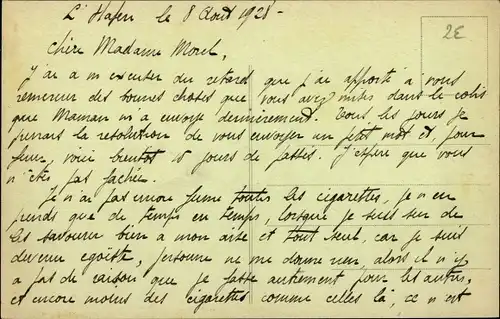 L' Hafen le 8 Août 1928 -
2E
Chère Madame Morel,
J'ai a m'excuser du retard que j'ai apporté à vous
remercier des bonnes choses que vous avez mises dans le colis
que Maman m'a envoyé dernièrement. Tous les jours je
prenais la resolution de vous envoyer un petit mot et, jour
jour, voici bientot 15 jours de passés. J'espère que vous
n'êtes pas fachée.
Je n'ai pas encore fumé toutes les cigarettes, je n'en
prends que de temps en temps, lorsque je suis sur de
les savourer bien a mon aise et tout seul, car je suis
devenu egoïste, personne ne me donne rien, alors il n'y
a pas de raison que je fasse autrement pour les autres,
et encore moins des cigarettes comme celles là, ce n'est